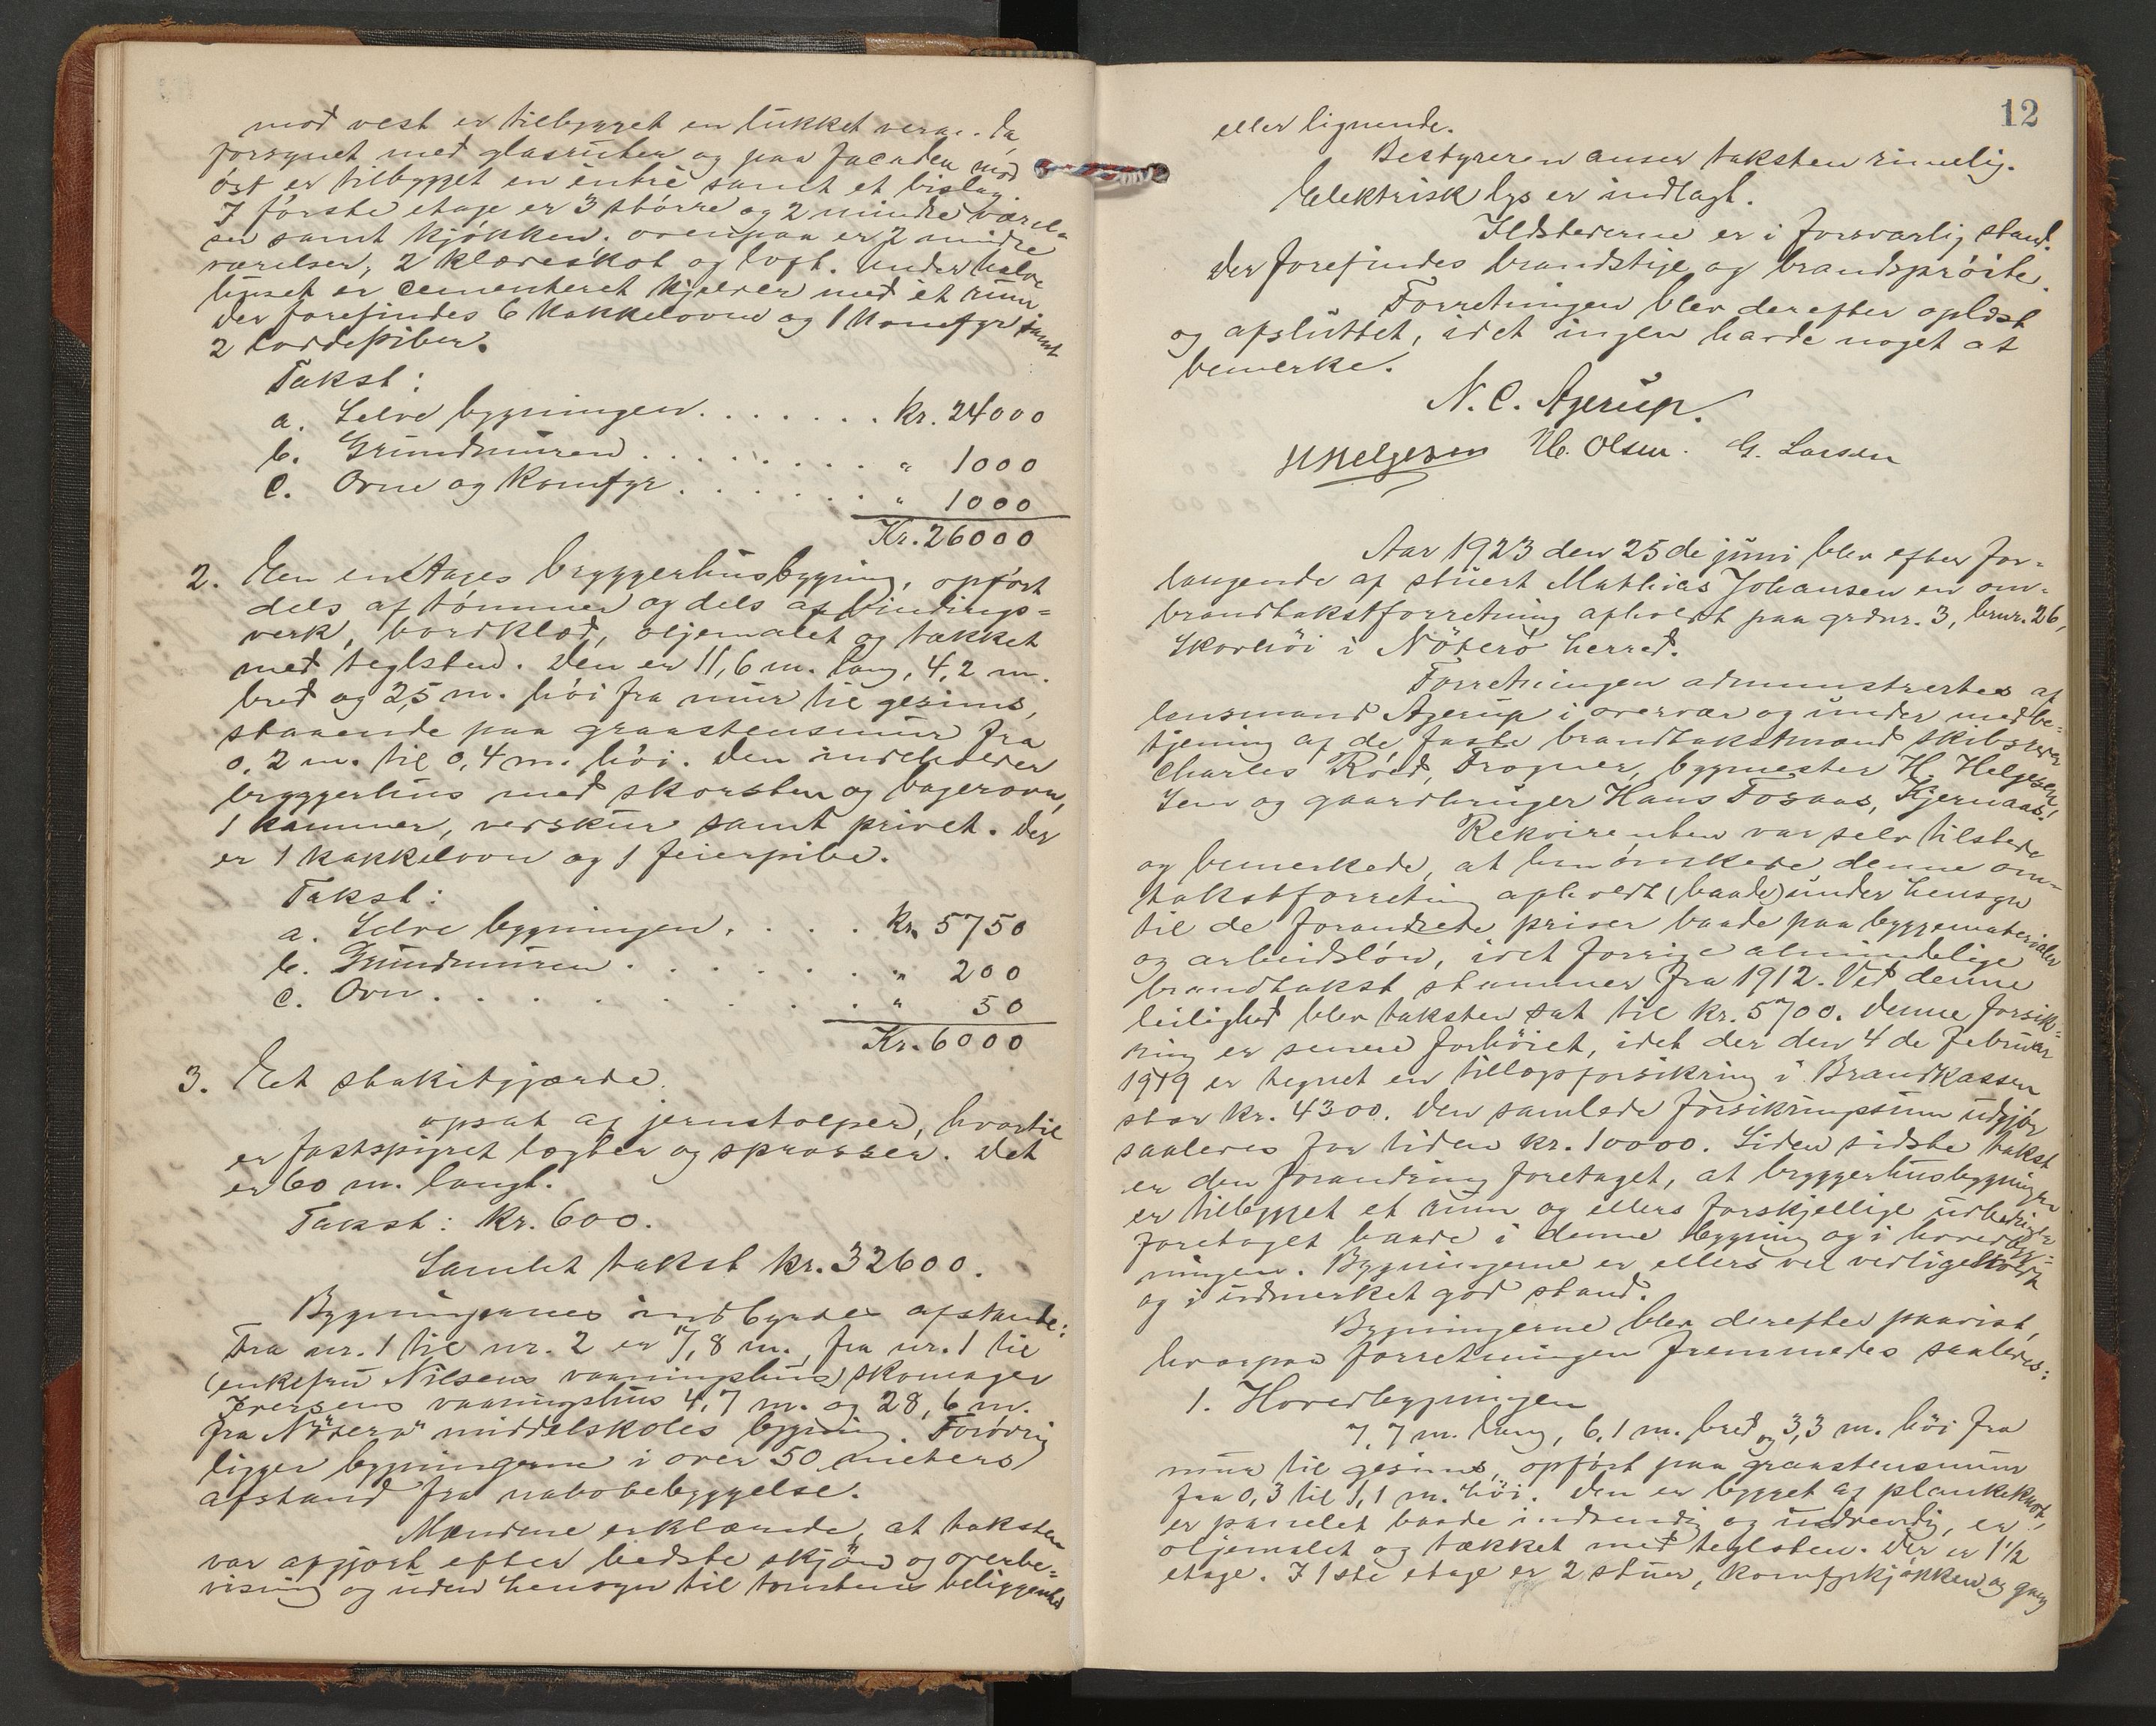 mod vest er tilbygget en lukket veran-da
forsynet med glasruter og paa facaden mod
øst er tilbygget en entré samt et bislag
I første etage er 3 større og 2 mindre værel-
ser samt kjøkken. ovenpaa er 2 mindre
værelser, 2 klæveskot og loft. Under halve
huset er cementeret kjelder med et rum
Der forefindes 6 kakkelovne og 1 komfyr samt
2 tordepiber.
Takst:
a. Selve bygningen. . . . . . . kr. 24000
b. Grundmuren . . . . . . . . . " 1000
c. Ovne og Komfyr. . . . . . . " 1000
Kr. 26000
2. Een enetages bryggerhusbygning, opført
dels af tømmer og dels af bindings=
verk, bordklæd, oljemalet og tækket
med teglsten. Den er 11,6 m. lang, 4,2 m.
bred og 2,5 m. høi fra mur til gesims,
staaende paa graastensmur fra
0,2 m. til 0,4 m. høi. Den indeholder
bryggerhus med skorsten og bagerovn,
1 kammer, vedskur samt privet. Der
er 1 kakkelovn og 1 feierpibe.
Takst:
a. Selve bygningen. . . . . kr. 5750
b. Grundmuren . . . . . . . . " 200
c. Ovn. . . . . . . . . . " 50
Kr. 6000
3. Eet stakitgjærde.
opsat af jernstolper, hvortil
er fastspigret lægter og sprosser. Det
er 60 m. langt.
Takst: kr. 600.
Samlet takst kr. 32600.
Bygningernes indbyrdes afstande:
Fra nr. 1 til nr. 2 er 7,8 m., fra nr. 1 til
(enkefru Nilsens vaaningshus) skomager
Iversens vaaningshus 4,7 m. og 28,6 m.
fra Nøterø middelskoles bygning. Forøvrig
ligger bygningerne i over 50 meters
afstand fra nabobebyggelse.
Mændene erklærede, at taksten
var afgjort efter bedste skjøn og overbe-
visning og uden hensyn til tomtens beliggenhed
12
eller lignende.
Bestyreren anser taksten rimelig.
Elektrisk lys er indlagt.
Ildstederne er i forsvarlig stand.
Der forefindes brandstige og brandsprøite.
Forretningen blev derefter oplæst
og afsluttet, idet ingen havde noget at
bemerke.
N. C. Agerup.
H Helgesen H. Olsen. G. Larsen
Aar 1923 den 25de juni blev efter for-
langende af stuert Mathias Johansen en om-
brandtakstforretning afholdt paa grdnr. 3, brnr. 26,
Skovhøi i Nøterø herred.
Forretningen administrertes af
lensmand Agerup i overvær og under medbe-
tjening af de faste brandtakstmænd skibsreder
Charles Röed, Trogner, bygmester H. Helgesen
Sem og gaardbruger Hans Tosaas, Kjernaas.
Rekvirenten var selv tilstede
og bemerkede, at han ønskede denne om-
takstforretning afholdt (baade) under hensyn
til de forandrede priser baade paa byggematerialer
og arbeidsløn, idet forrige almindelige
brandtakst stammer fra 1912. Ved denne
leilighed blev taksten sat til kr. 5700. Denne forsik-
ring er senere forhøiet, idet der den 4de februar
1919 er tegnet en tillægsforsikring i Brandkassen
stor kr. 4300. Den samlede forsikringssum udgjør
saaledes for tiden kr. 10000. Siden sidste takst
er den forandring foretaget, at bryggerhusbygningen
er tilbygget et rum og ellers forskjellige udbedringer
foretaget baade i denne bygning og i hovedbyg-
ningen. Bygningerne er ellers vel vedligeholdt
og i udmerket god stand.
Bygningerne blev derefter paavist,
hvorpaa forretningen fremmedes saaledes:
1. Hovedbygningen
7,7 m. lang, 6,1 m. bred og 3,3 m. høi fra
mur til gesims, opført paa graastensmur
fra 0,3 til 1,1 m. høi. Den er bygget af plankeknot,
er panelet baade indvendig og udvendig, er
oljemalet og tækket med teglsten. Der er 1½
etage. I 1ste etage er 2 stuer, komfyrkjøkken og gang